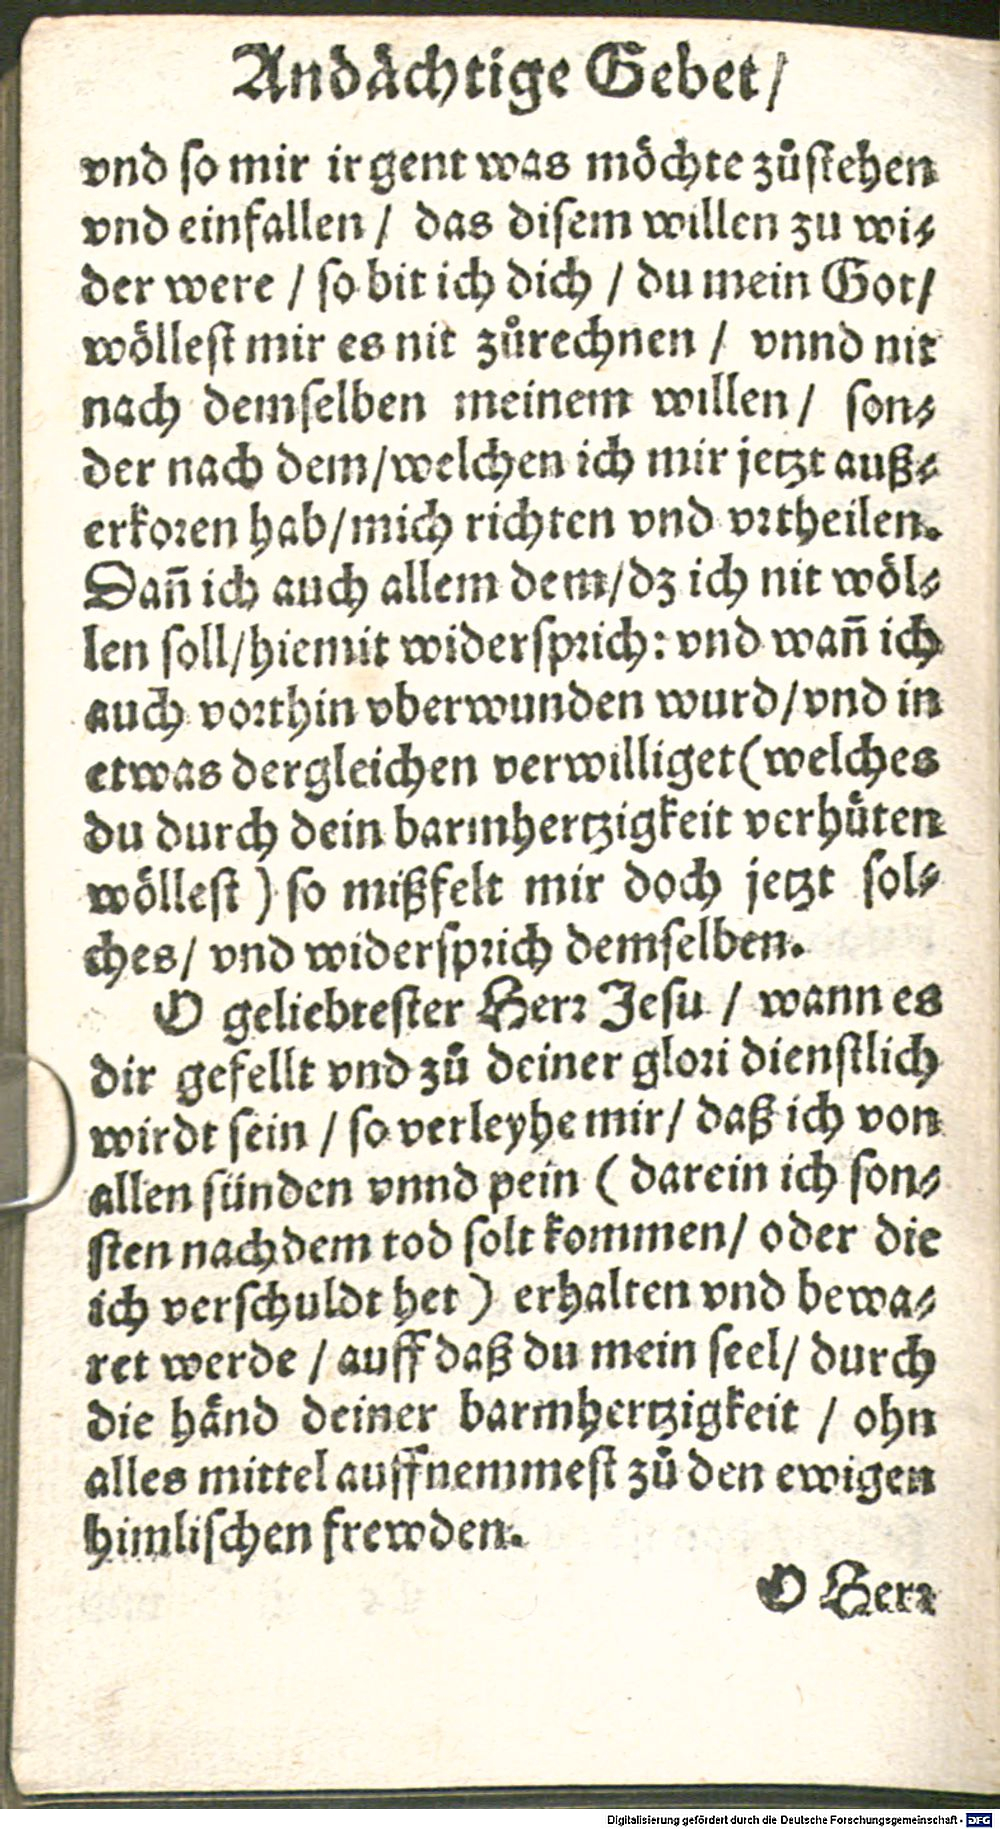 Andächtige Gebet/
vnd so mir irgent was möchte zůstehen
vnd einfallen / das disem willen zu wi-
der were / so bit ich dich / du mein Got/
wöllest mir es nit zůrechnen / vnnd nit
nach demselben meinem willen / son-
der nach dem/welchen ich mir jetzt auß-
erkoren hab/mich richten vnd vrtheilen.
Dañ ich auch allem dem/dz ich nit wöl-
len soll/hiemit widersprich: vnd wañ ich
auch vorthin vberwunden wurd/vnd in
etwas dergleichen verwilliget(welches
du durch dein barmhertzigkeit verhüten
wöllest) so mißfelt mir doch jetzt sol-
ches/ vnd widersprich demselben.
O geliebtester Herr Jesu / wann es
dir gefellt vnd zů deiner glori dienstlich
wirdt sein / so verleyhe mir/ daß ich von
allen sünden vnnd pein ( darein ich son-
sten nach dem tod solt kommen/ oder die
ich verschuldt het) erhalten vnd bewa-
ret werde / auff daß du mein seel/ durch
die händ deiner barmhertzigkeit / ohn
alles mittel auffnemmest zů den ewigen
himlischen frewden.
O Herr
Digitalisierung gefördert durch die Deutsche Forschungsgemeinschaft - DFG